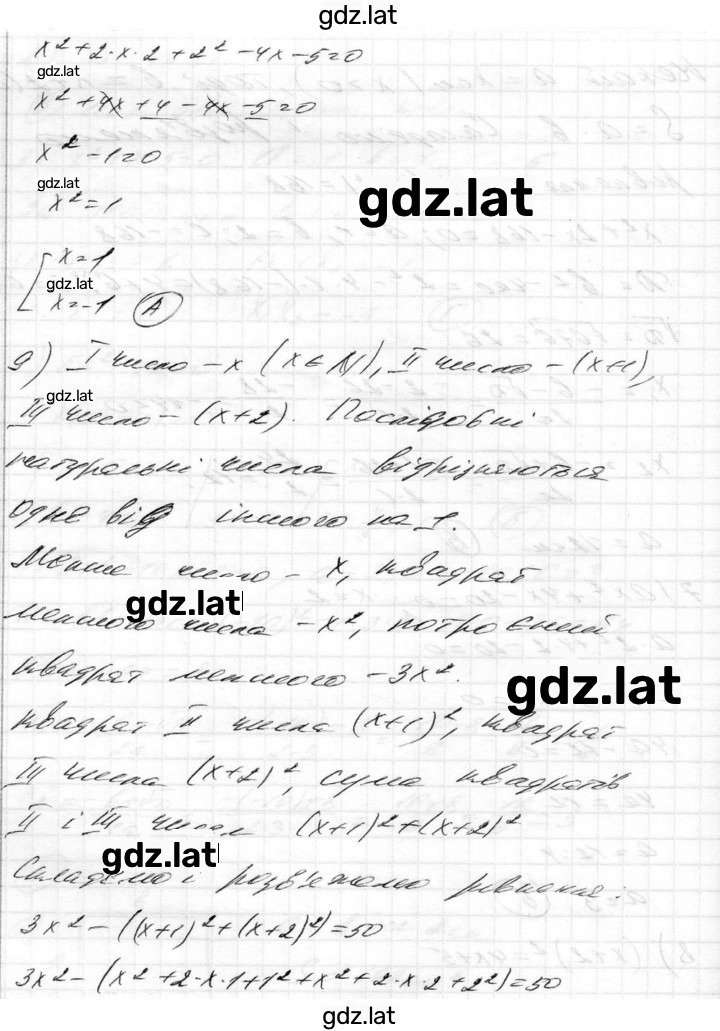 gdz.lat
x² + 2·x·2 + 2² - 4x - 5 = 0
gdz.lat
x² + 4x + 4 - 4x - 5 = 0
x² - 1 = 0
gdz.lat
x² = 1
gdz.lat
x = 1
gdz.lat
x = -1 А
9) I число - x (x ∈ N), II число - (x+1),
gdz.lat
III число - (x+2). Послідовні
натуральні числа відрізняються
одне від іншого на 1.
Менше число - x, квадрат
gdz.lat
меншого числа - x², потроєний
квадрат меншого - 3x².
gdz.lat
квадрат II числа (x+1)², квадрат
III числа (x+2)², сума квадратів
II і III чисел (x+1)² + (x+2)²
gdz.lat
Складемо і розв'яжемо рівняння:
3x² - ((x+1)² + (x+2)²) = 50
3x² - (x² + 2·x·1 + 1² + x² + 2·x·2 + 2²) = 50
gdz.lat